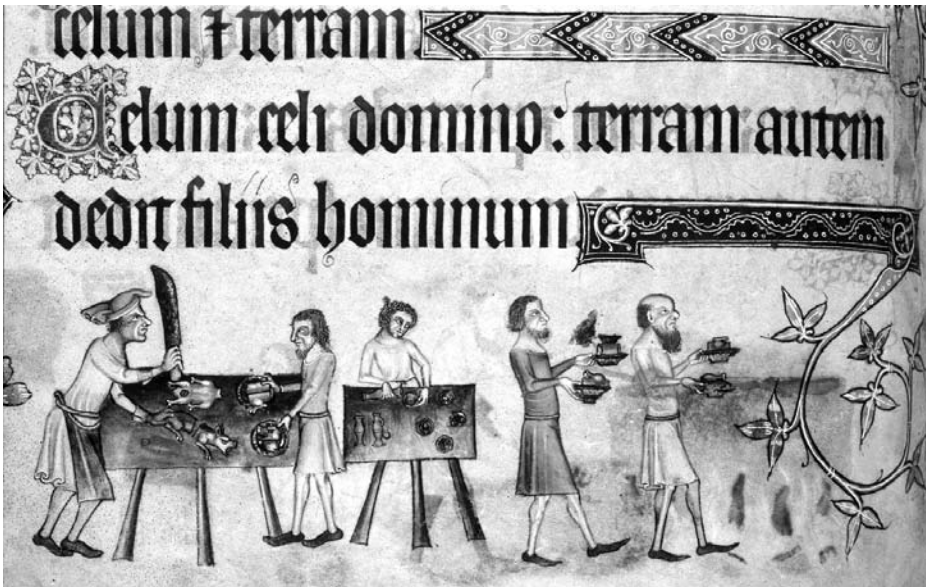 celum ⁊ terram.
Celum celi domino: terram autem
dedit filiis hominum.